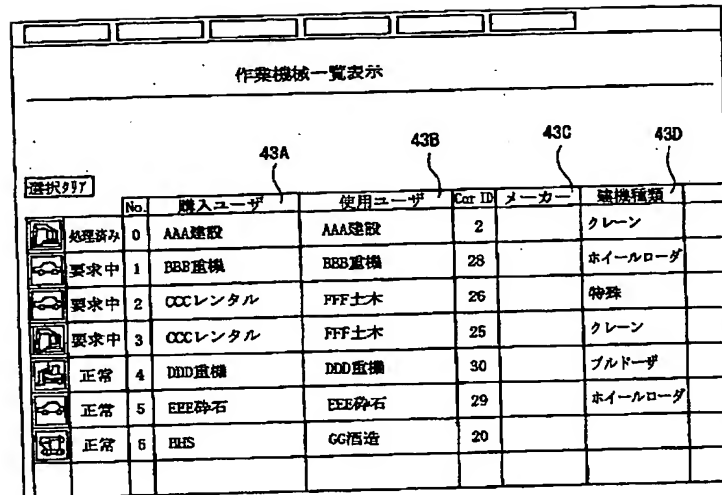 作業機械一覧表示
43A 43B 43C 43D
選択クリア
No. 購入ユーザ 使用ユーザ Car ID メーカー 建機種類
処理済み 0 AAA建設 AAA建設 2 クレーン
要求中 1 BBB重機 BBB重機 28 ホイールローダ
要求中 2 CCCレンタル FFF土木 26 特殊
要求中 3 CCCレンタル FFF土木 25 クレーン
正常 4 DDD重機 DDD重機 30 ブルドーザ
正常 5 EEE砕石 EEE砕石 29 ホイールローダ
正常 6 HHS GG酒造 20